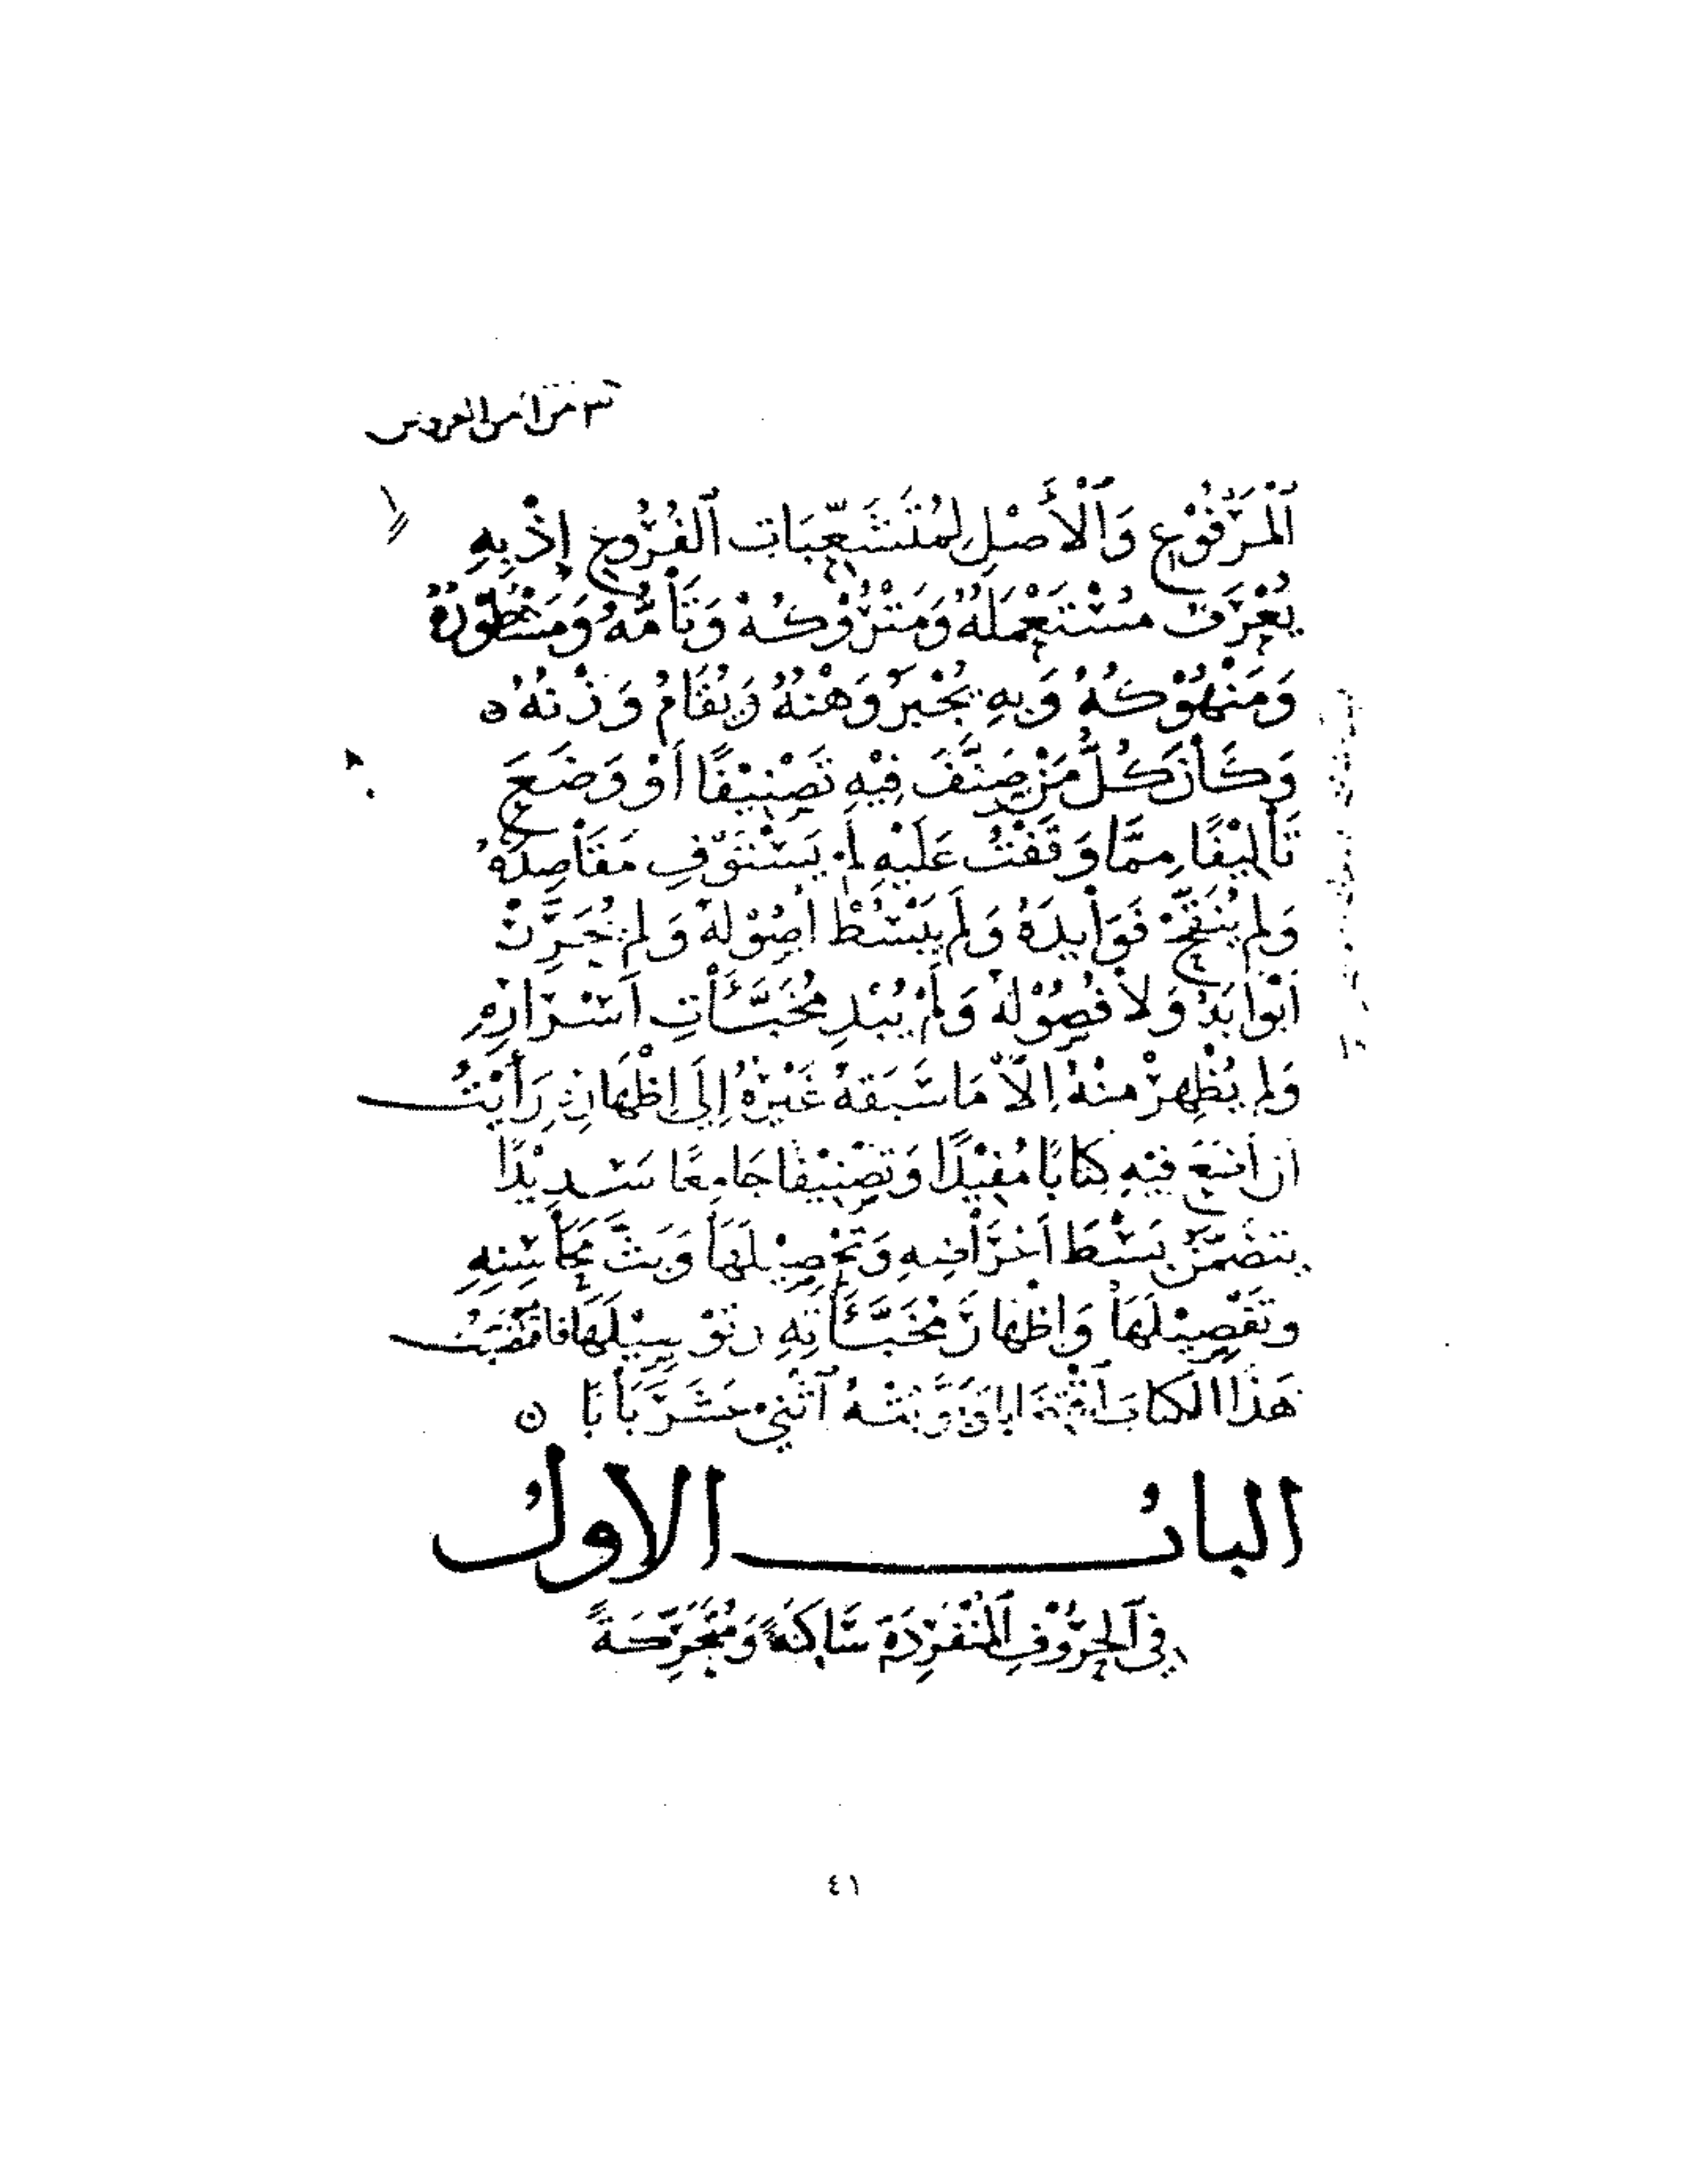 ٱلْمَرْفُوْعِ وَٱلْأَصْلِ لِمُتَشَعِّبَاتِ ٱلْفُرُوعِ إِذْ بِهِ
يُعْرَفُ مُسْتَعْمَلُهُ وَمَتْرُوْكُهُ وَتَامُّهُ وَمَشْطُورُهُ
وَمَنْهُوْكُهُ وَبِهِ يُجْبَرُ وَهْنُهُ وَيُقَامُ وَزْنُهُ ه
وَكَانَ كُلُّ مَنْ صَنَّفَ فِيْهِ تَصْنِيْفًا أَوْ وَضَعَ
تَأْلِيْفًا مِمَّا وَقَفْتُ عَلَيْهِ لَمْ يَسْتَوْفِ مَقَاصِدَهُ
وَلَمْ يُنَقِّحْ فَوَايِدَهُ وَلَمْ يَبْسُطْ أُصُوْلَهُ وَلَمْ يُحَرِّرْ
أَبْوَابَهُ وَلَا فُصُوْلَهُ وَلَمْ يُبْدِ مُخَبَّئَاتِ أَسْرَارِهِ
وَلَمْ يُظْهِرْ مِنْهُ إِلَّا مَا سَبَقَهُ غَيْرُهُ إِلَى إِظْهَارِهِ رَأَيْتُ
أَنْ أَضَعَ فِيْهِ كِتَابًا مُفِيْدًا وَتَصْنِيْفًا جَامِعًا سَدِيْدًا
يتضَمَّنُ بَسْطَ أَعْرَاضِهِ وَتَحْصِيْلَهَا وَبَثَّ مَحَاسِنِهِ
وتَفْصِيْلَهَا وَإِظْهَارَ مُخَبَّئَاتِهِ وتَسْهِيْلَهَا
هَذَا الكِتَابَ وَبَوَّبْتُهُ ٱثْنَيْ عَشَرَ بَابًا ه
البابُ الاولُ
فِي ٱلْحُرُوْفِ ٱلْمُنْفَرِدَةِ سَاكِنَةً وَمُتَحَرِّكَةً
٤١